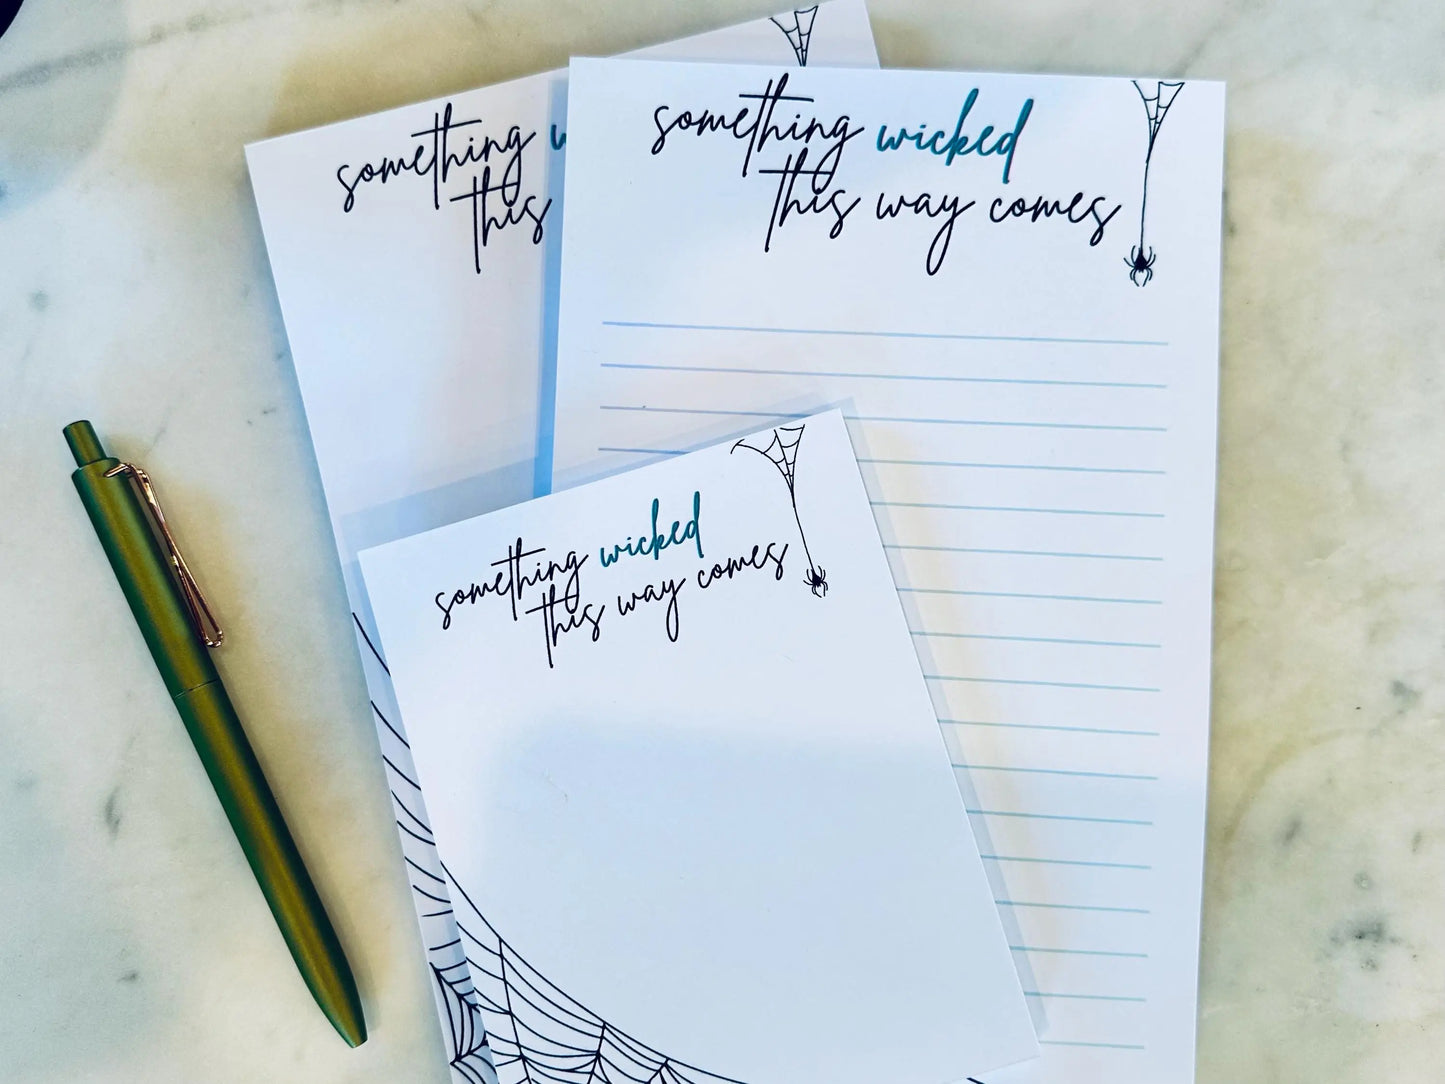 something
this
something wicked
this way comes
something wicked
this way comes